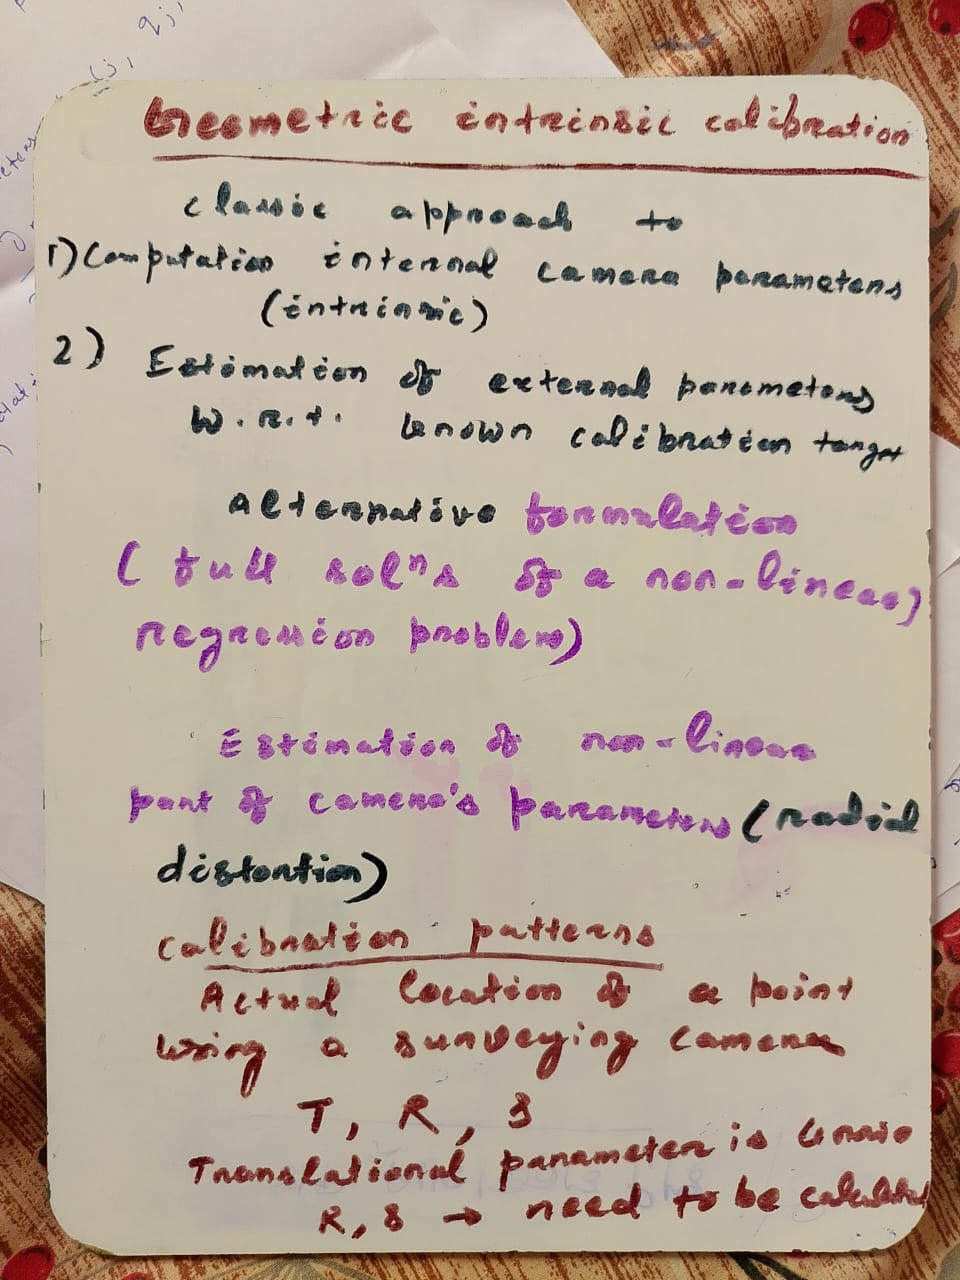 Geometric intrinsic calibration
classic approach to
1) Computation internal camera parameters
(intrinsic)
2) Estimation of external parameters
W.R.t. known calibration target
Alternative formulation
( full solⁿs of a non-linear)
regression problem)
Estimation of non-linear
part of camera's parameters (radial
distortion)
Calibration patterns
Actual location of a point
using a surveying camera
T, R, S
Translational parameter is
R, S → need to be calculated